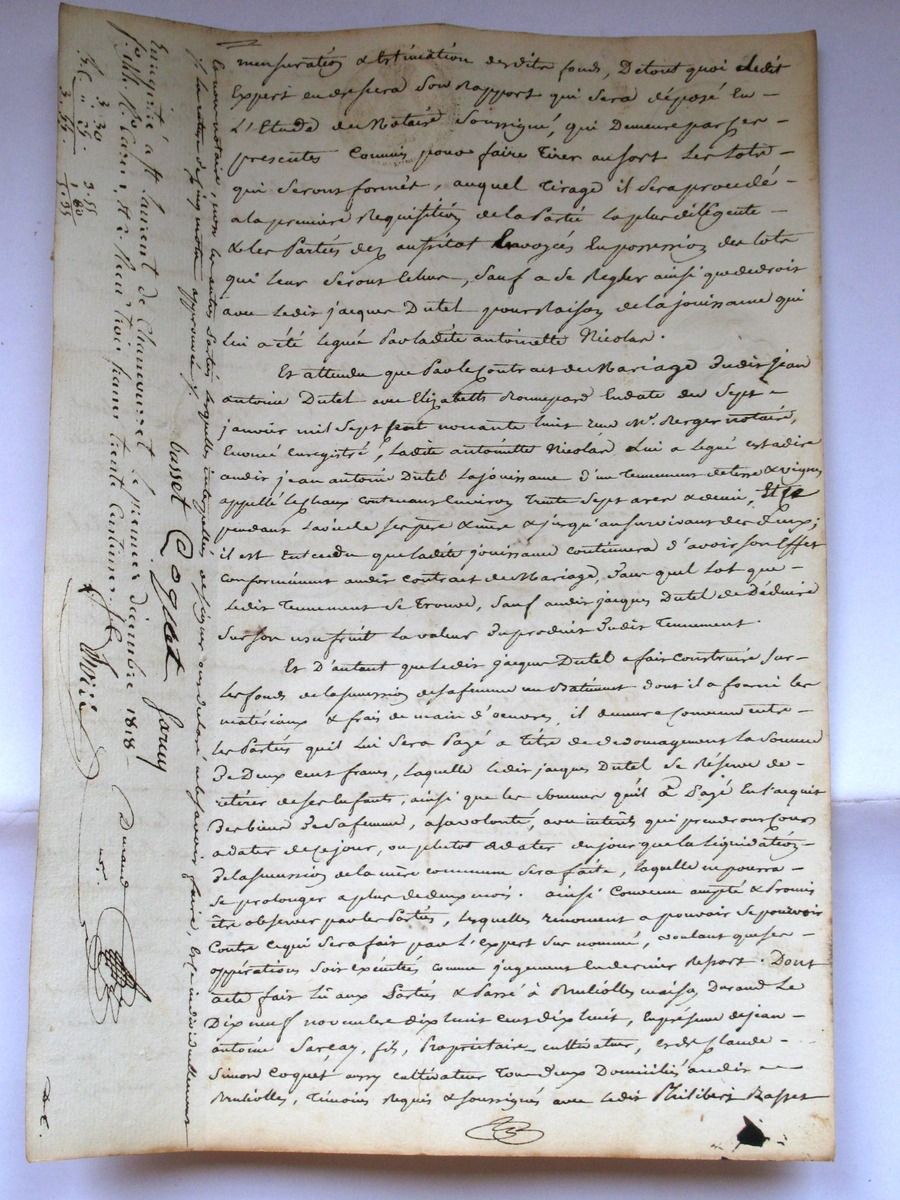 mensuration & Estimation desdits fonds, De tout quoi Ledit
Expert en dressera Son Rapport qui Sera déposé En
L'Etude du Notaire Soussigné, qui Demeure par ses
presentes Commis pour faire Tirer au fort Les Lots
qui Seront formés, auquel Tirage il Sera procedé
a la premiere Requisition de la Partie La plus diligente
& les Parties dez aussitot Envoyés En possession des lots
qui Leur Seront Echus, Sauf a Se Regler ainsi que de droit
avec Ledit jacques Dutel pour Raison de la jouissance qui
Lui a été Leguée Par ladite antoinette Nicolas.
Et attendu que Par le Contrat de Mariage Dudit jean
antoine Dutel avec Elizabeth En date du Sept
janvier mil Sept Cent nonante huit Me. Berger notaire,
Enoncé Enregistré, Ladite antoinette Nicolas Lui a Legué c'est a dire
audit jean antoine Dutel La jouissance d'un Tenement de terre & vignes
appellé Contenant Environ Trente Sept ares & demi,
pendant La vie de Ses père & mère & jusqu'au Survivant des Deux;
il est Entendu que ladite jouissance Continuera d'avoir Son Effet
Conformement audit Contrat de Mariage, Dans quel Lot que
Ledit Tenement Se Trouve, Sauf audit jacques Dutel de Déduire
Sur Son usufruit La valeur Du produit Dudit Tenement.
Et D'autant que Ledit jacques Dutel a fait Construire Sur
Les fonds de la Succession de Sa femme un Batiment dont il a fourni les
matériaux & frais de main d'oeuvres, il demeure Convenu entre
Les Parties qu'il Lui Sera Payé a Titre de dedomagement La Somme
De Deux Cent francs, Laquelle Ledit jacques Dutel Se Réserve de
retirer de Ses Enfants, ainsi que les Sommes qu'il a Payé En l'acquit
Des biens De Sa femme, a Sa volonté, avec intérêts qui prendront Cours
a dater de Ce jour, ou plutot a dater du jour que La Liquidation
De la Succession de la mère Commune Sera faite, Laquelle ne pourra
Se prolonger a plus de deux mois. ainsi Convenu accepté & Promis
être observer par les Parties, Lesquelles renoncent a pouvoir Se pourvoir
Contre Ce qui Sera fait par L'Expert Sur nommé, voulant que Ses
opperations Soit exécutés Comme jugement En dernier Resort. Dont
acte fait Lû aux Parties & Passé à Brulliolles maison Durand Le
Dix neuf novembre dix huit Cent dix huit, En presence de jean
antoine Sarcay, fils, Propriétaire Cultivateur, et de Claude
Simon Coquet aussi Cultivateur Tous deux Domiciliés audit
Brulliolles, Témoins Requis & Soussignés avec Ledit Philibert Basset
Et nous notaire, non les autres Parties Lesquelles interpellées de signer ont declaré ne le Savoir faire, Et Ce individuellement
La rature de cinq mots approuvée
basset Coquet Sarcay
Durand
nre.
Enregistré a St. Laurent de Chamousset Le premier décembre 1818
fo. Reçu Trois francs trente Centimes
3. 30
3. 55